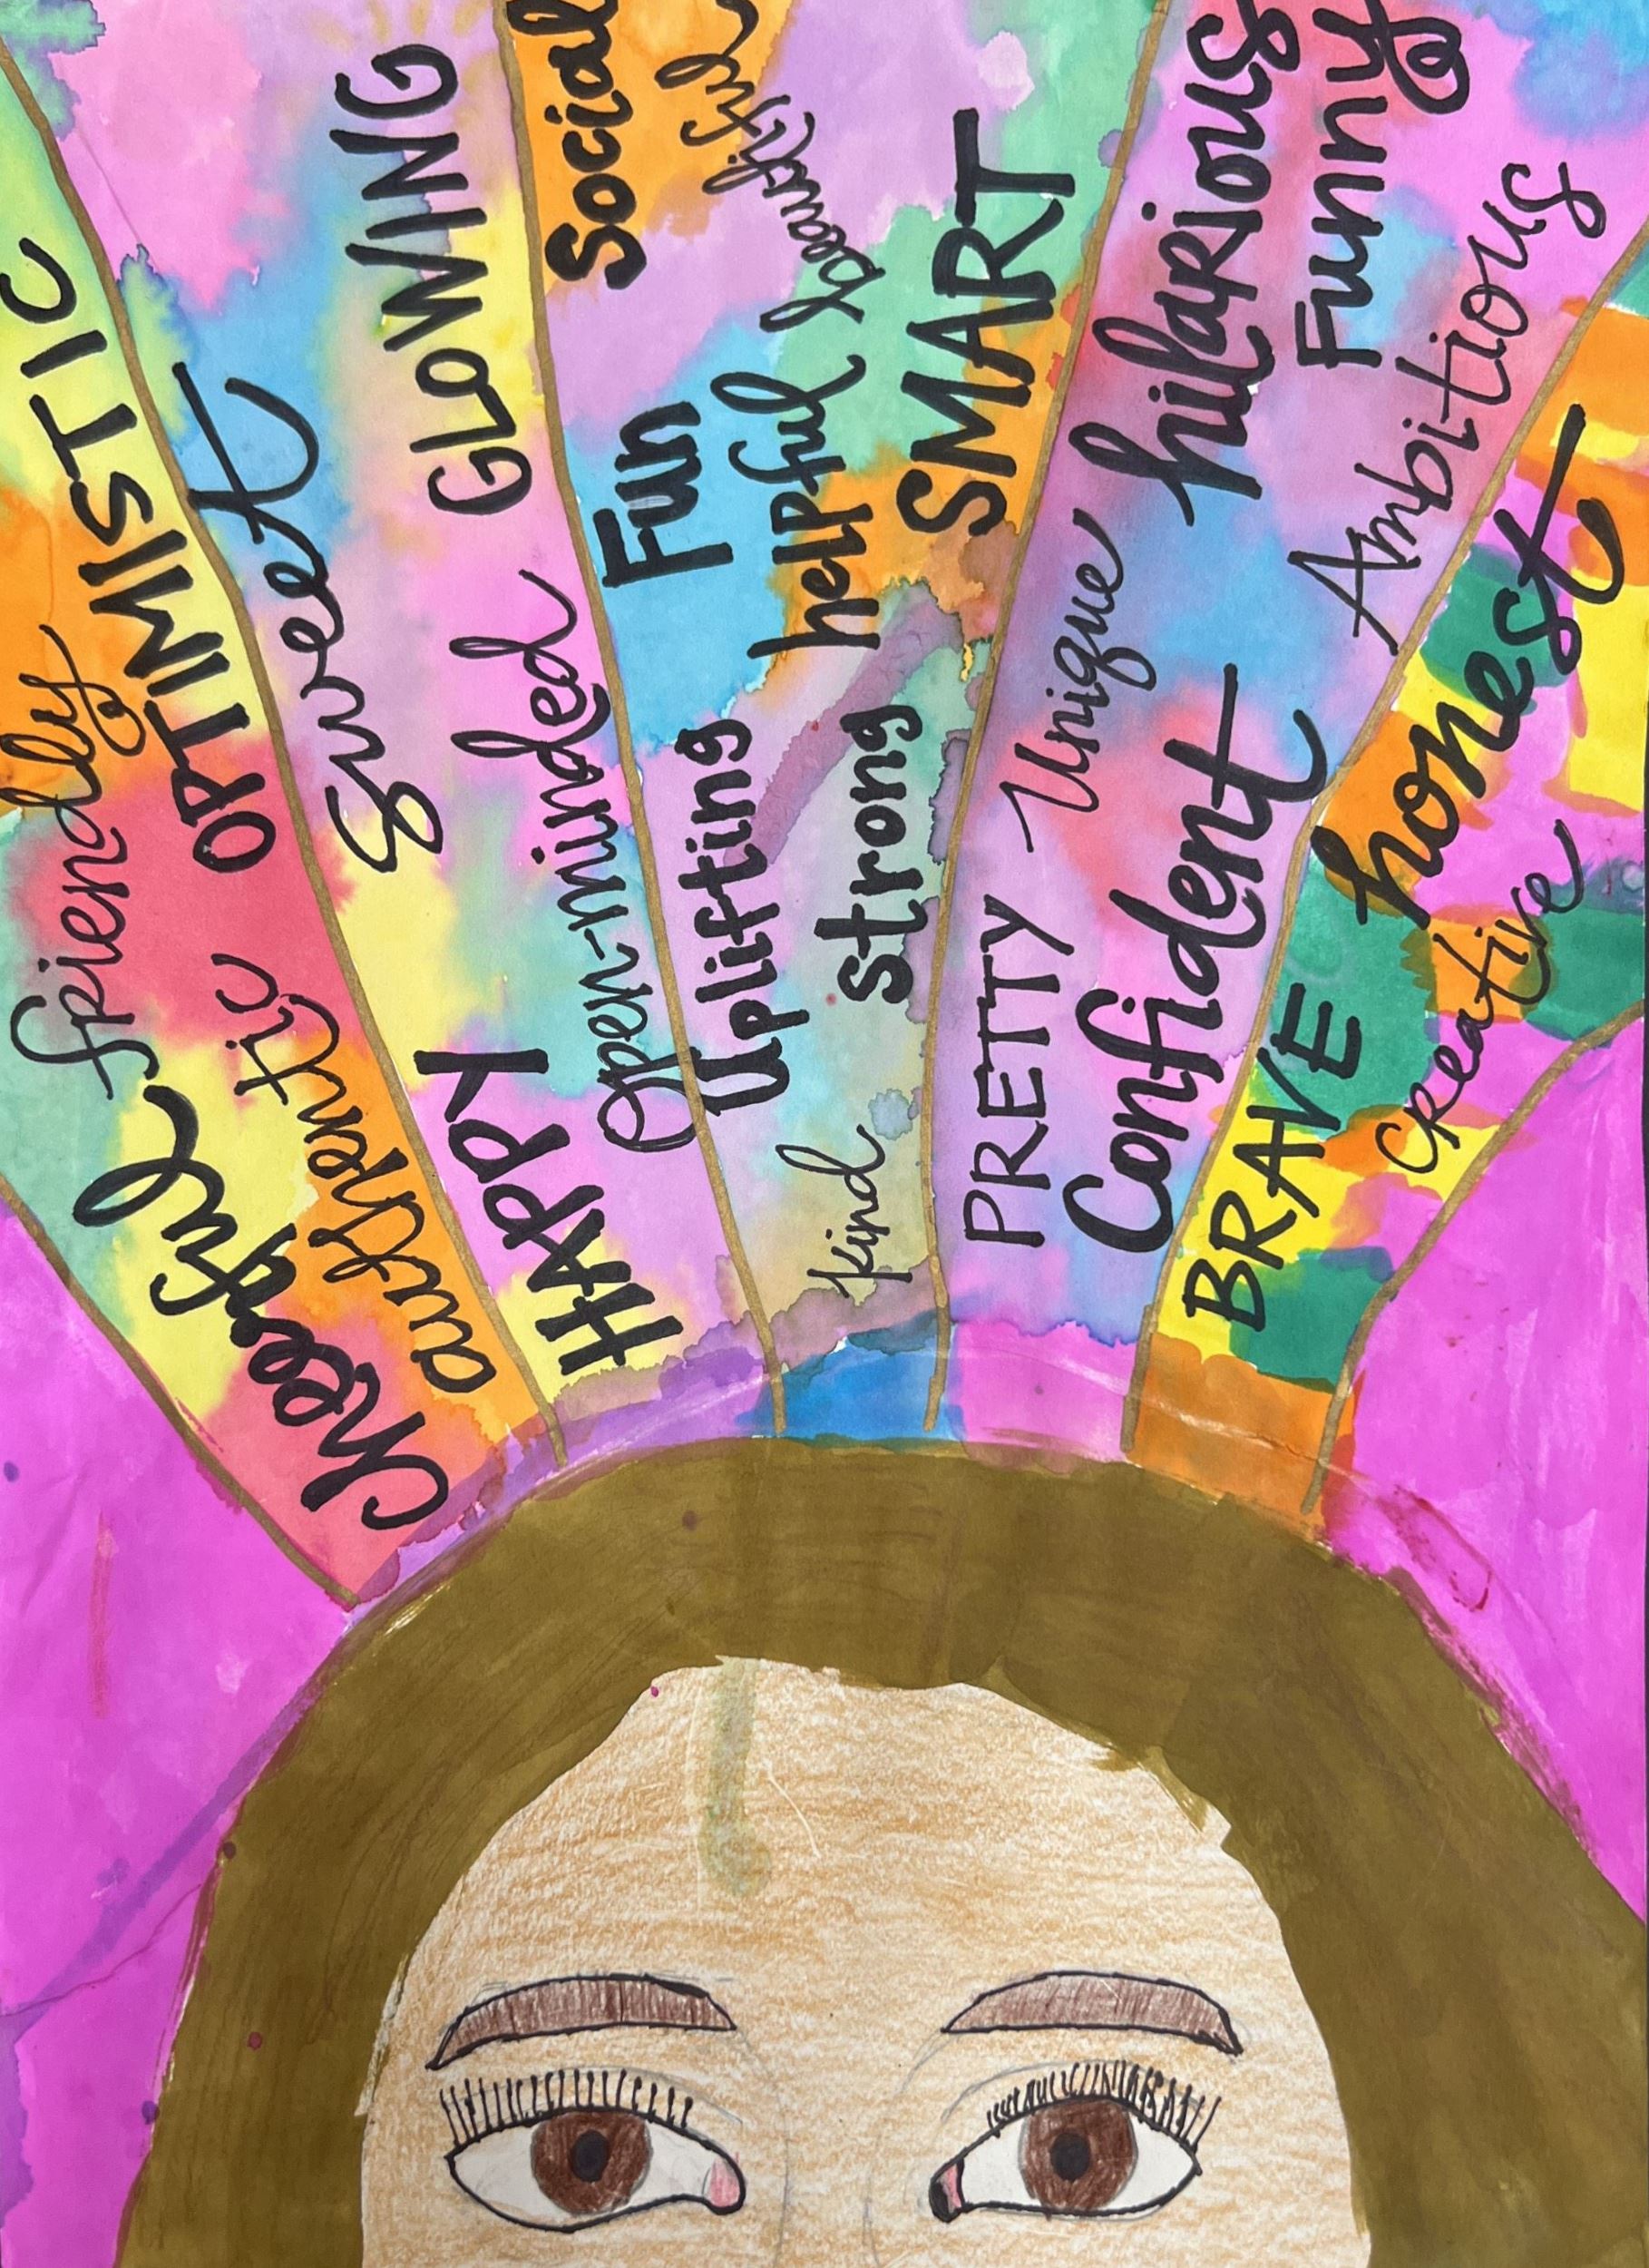 friendly
OPTIMISTIC
Cheerful
authentic
Sweet
GLOWING
HAPPY
Open-minded
Social
beautiful
Fun
helpful
SMART
Uplifting
strong
kind
hilarious
Funny
Unique
Ambitious
PRETTY
Confident
honest
BRAVE
creative